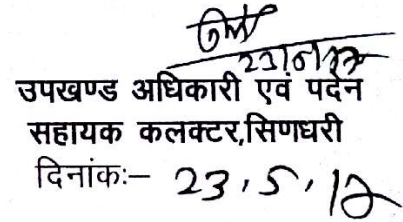 उपखण्ड अधिकारी एवं पदेन
सहायक कलक्टर,सिणधरी
दिनांकः– 23.5.12